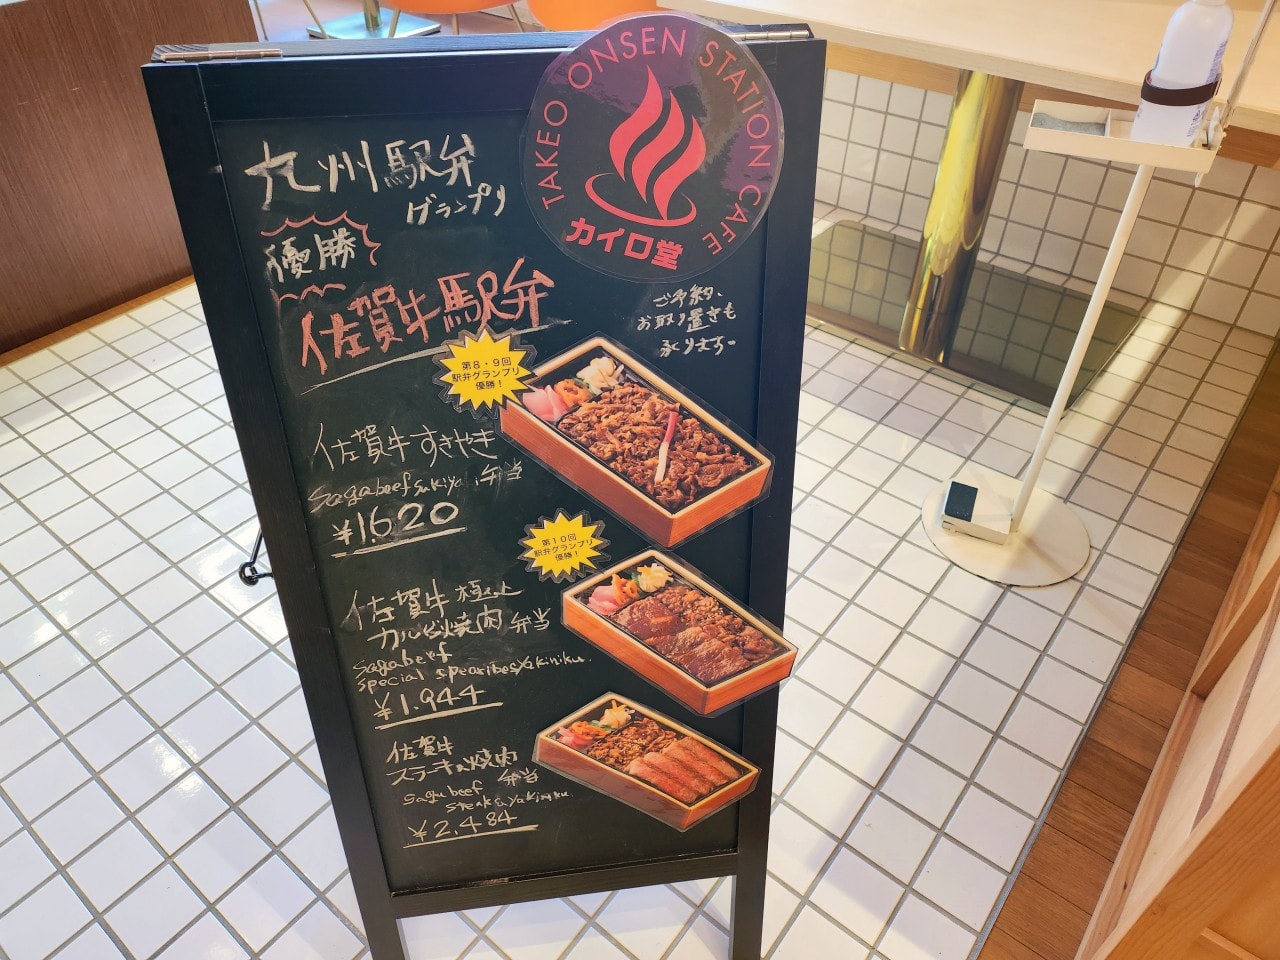 TAKEO ONSEN STATION CAFE
カイロ堂
九州駅弁
グランプリ
優勝
佐賀牛駅弁
ご予約、
お取り置きも
承ります。
第8・9回
駅弁グランプリ
優勝！
佐賀牛すきやき
弁当
Saga beef sukiya
¥1620
第10回
駅弁グランプリ
優勝！
佐賀牛極上
カルビ焼肉弁当
Saga beef
special spearibes yakiniku.
¥1.944
佐賀牛
ステーキ&焼肉
弁当
Saga beef
steak & yakiniku.
¥2.484